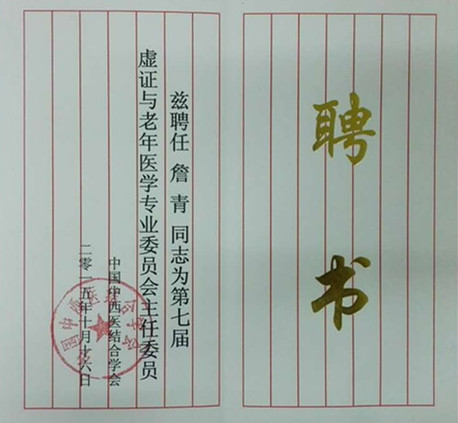 聘书
兹聘任 詹 青 同志为第七届
虚证与老年医学专业委员会主任委员
中国中西医结合学会
二零一五年十月十六日